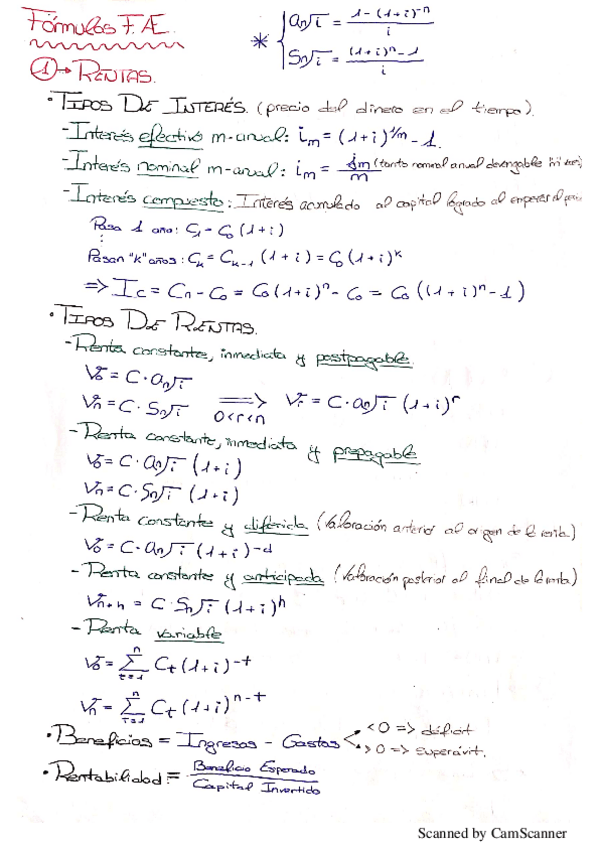 Fórmulas F.AE.
* { an¬i = 1-(1+i)^-n / i
Sn¬i = (1+i)^n - 1 / i
① → RENTAS.
· TIPOS DE INTERÉS. (precio del dinero en el tiempo).
- Interés efectivo m-anual: im = (1+i)^1/m - 1.
- Interés nominal m-anual: im = Jm / m (tanto nominal anual devengable
- Interés compuesto: Interés acumulado al capital logrado al empezar el
Pasa 1 año: C1 - C0 (1+i)
Pasan "k" años: Ck = Ck-1 (1+i) = C0 (1+i)^k
=> Ic = Cn - C0 = C0 (1+i)^n - C0 = C0 ((1+i)^n - 1)
· TIPOS DE RENTAS.
- Renta constante, inmediata y postpagable.
V0 = C · an¬i
Vn = C · Sn¬i => 0<r<n Vr = C · an¬i (1+i)^r
- Renta constante, inmediata y prepagable
V0 = C · an¬i (1+i)
Vn = C · Sn¬i (1+i)
- Renta constante y diferida (Valoración anterior al origen de la renta)
V0 = C · an¬i (1+i)^-d
- Renta constante y anticipada (Valoración posterior al final de la renta)
Vn+h = C Sn¬i (1+i)^h
- Renta variable
V0 = Σ n t=1 Ct (1+i)^-t
Vn = Σ n t=1 Ct (1+i)^n-t
· Beneficios = Ingresos - Gastos < 0 => déficit
> 0 => superávit.
· Rentabilidad = Beneficio Esperado / Capital Invertido
Scanned by CamScanner